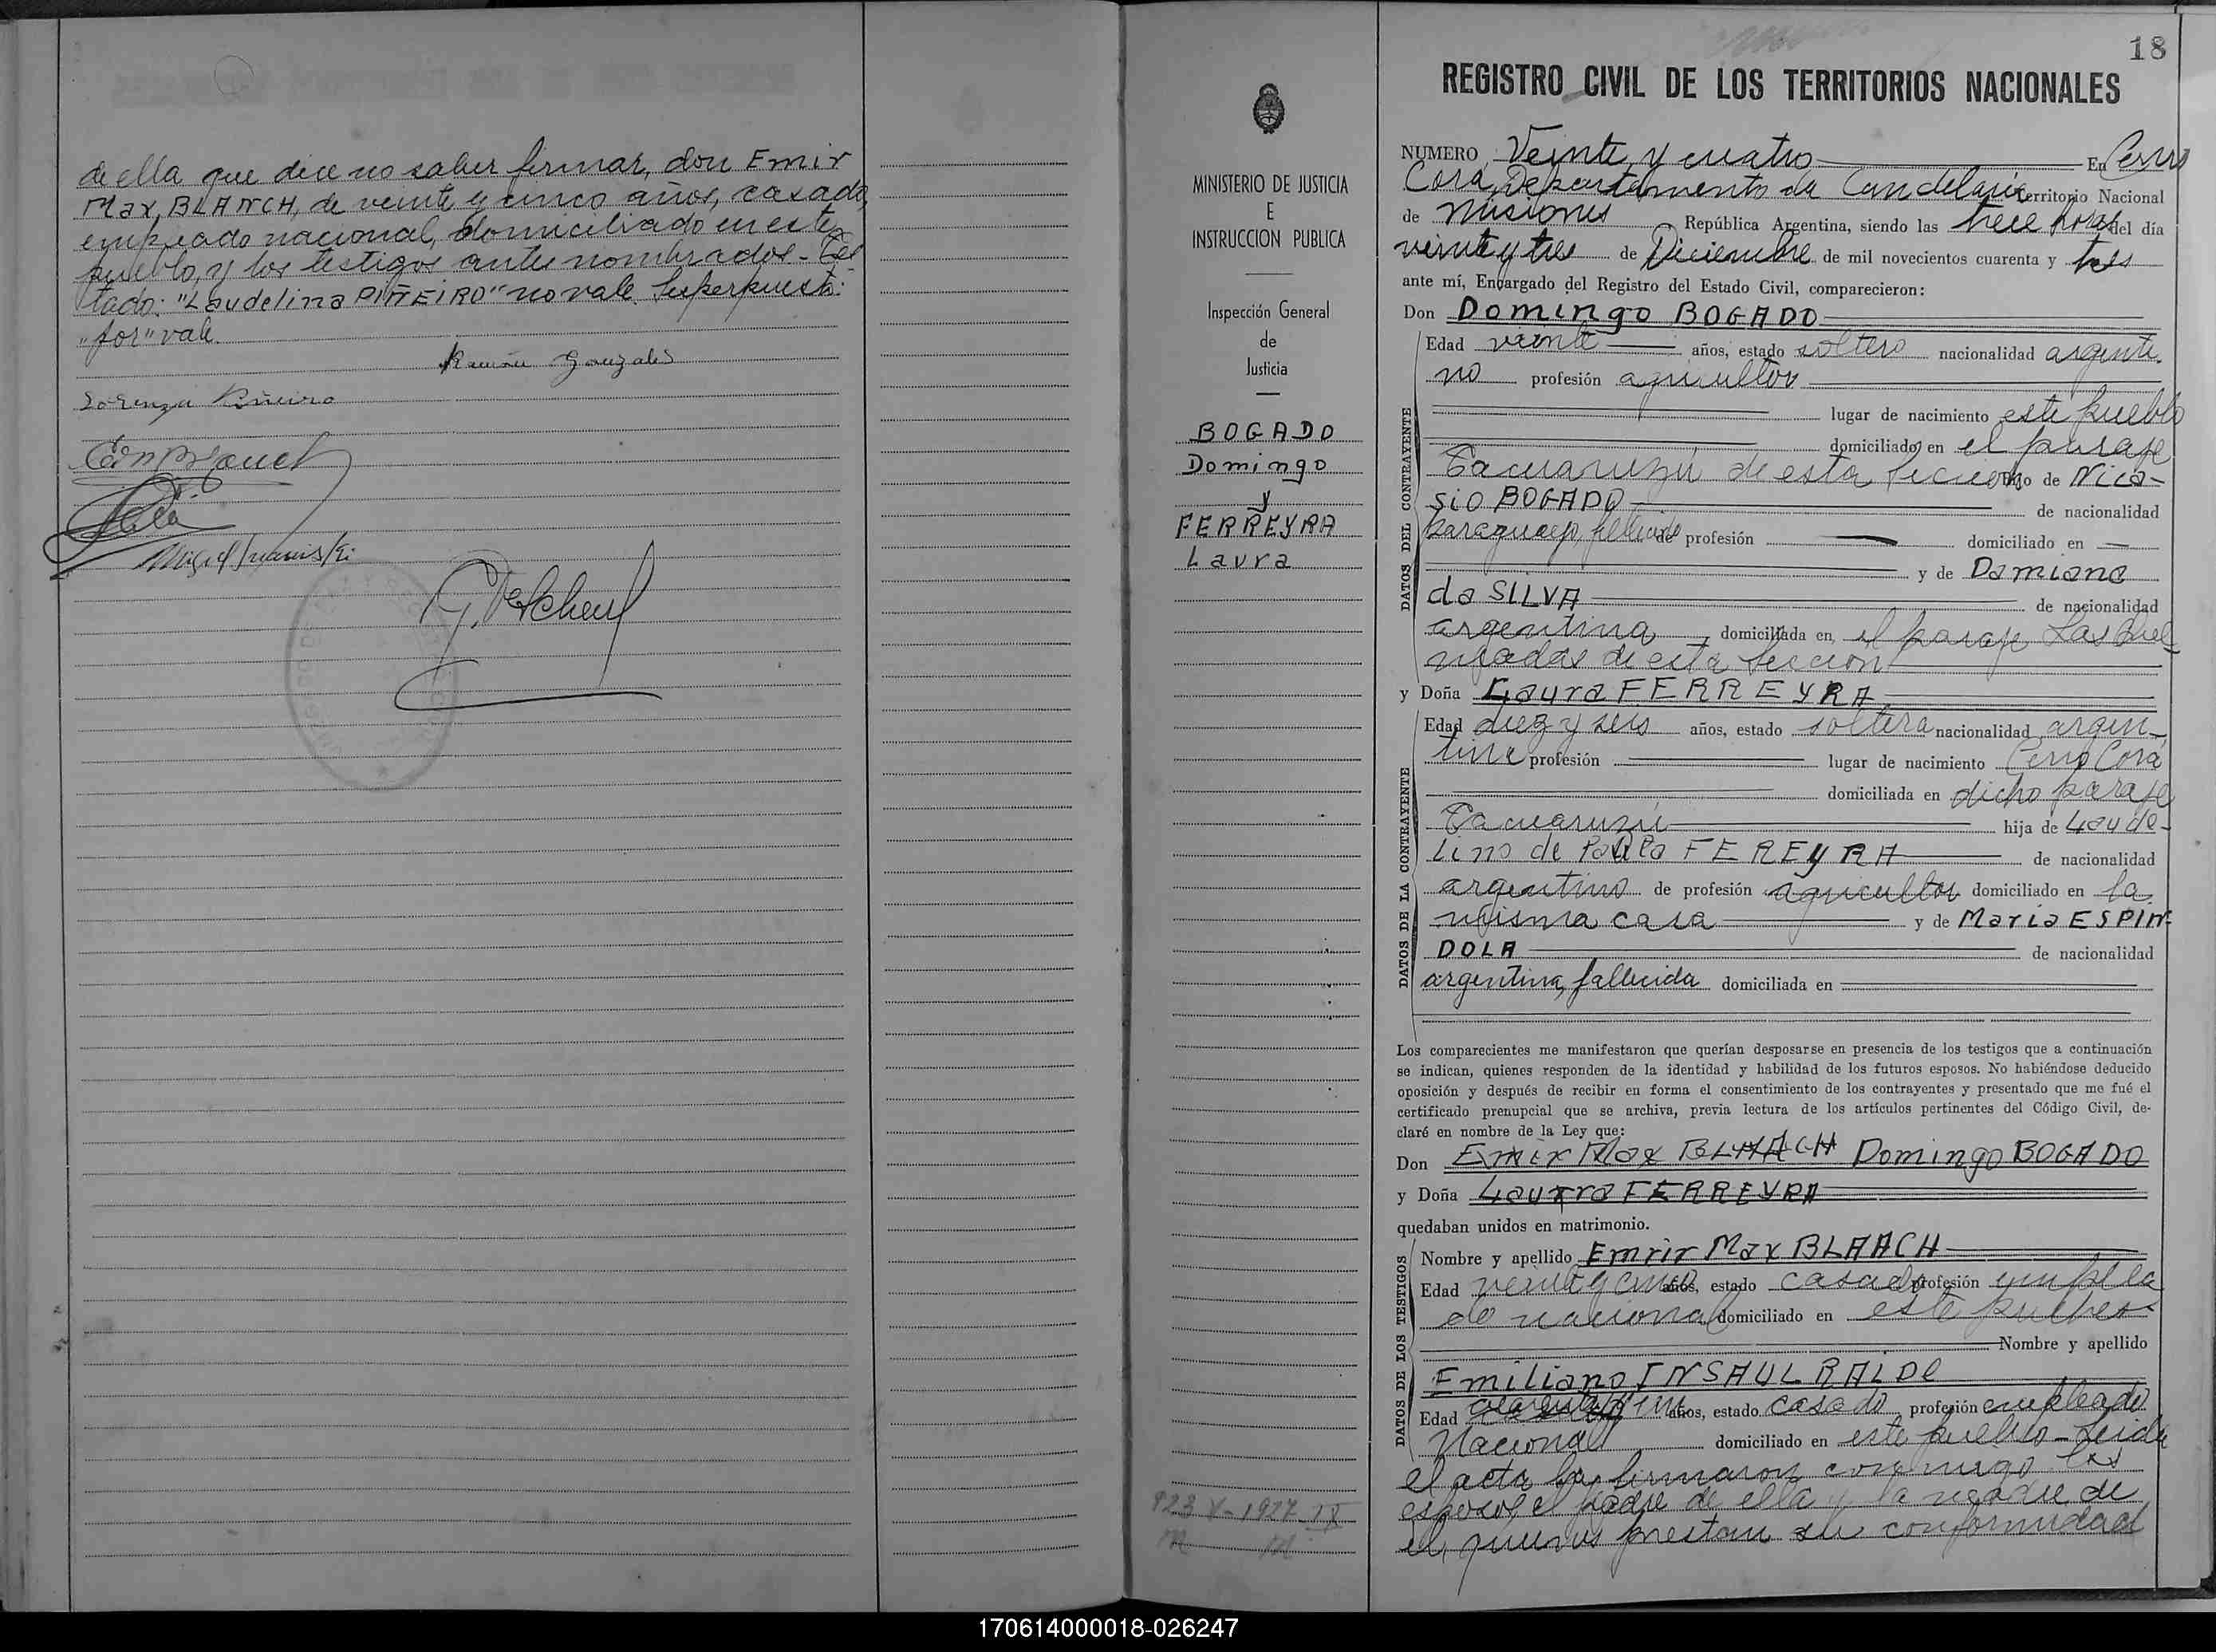 de ella que dice no saber firmar, don Emir
Max, BLANCH, de veinte y cinco años, casado,
empleado nacional, domiciliado en este
pueblo, y los testigos antes nombrados - Tes-
tado: "Laudelina PIÑEIRO" no vale. Superpuesto:
"for" vale.
Ramón Gonzales
Lorenza Piñeiro
18
REGISTRO CIVIL DE LOS TERRITORIOS NACIONALES
MINISTERIO DE JUSTICIA
E
INSTRUCCION PUBLICA
Inspección General
de
Justicia
BOGADO
Domingo
y
FERREYRA
Laura
NUMERO Veinte y cuatro En Cerro
Corá, Departamento de Candelaria Territorio Nacional
de Misiones República Argentina, siendo las trece horas del día
veinte y tres de Diciembre de mil novecientos cuarenta y tres
ante mí, Encargado del Registro del Estado Civil, comparecieron:
Don Domingo BOGADO
DATOS DEL CONTRAYENTE
Edad veinte años, estado soltero nacionalidad argenti-
no profesión agricultor
lugar de nacimiento este pueblo
domiciliado en el paraje
Tacuaruzú de esta sección hijo de Nica-
sio BOGADO de nacionalidad
paraguayo, fallecido de profesión domiciliado en
y de Damiana
da SILVA de nacionalidad
argentina, domiciliada en el paraje Las Quel-
madas de esta sección
y Doña Laura FERREYRA
DATOS DE LA CONTRAYENTE
Edad diez y seis años, estado soltera nacionalidad argen-
tina profesión lugar de nacimiento Cerro Corá
domiciliada en dicho paraje
Tacuaruzú hija de Laude-
lino de Paula FEREYRA de nacionalidad
argentino de profesión agricultor domiciliado en la
misma casa y de Maria ESPIN-
DOLA de nacionalidad
argentina, fallecida domiciliada en
Los comparecientes me manifestaron que querían desposarse en presencia de los testigos que a continuación
se indican, quienes responden de la identidad y habilidad de los futuros esposos. No habiéndose deducido
oposición y después de recibir en forma el consentimiento de los contrayentes y presentado que me fué el
certificado prenupcial que se archiva, previa lectura de los artículos pertinentes del Código Civil, de-
claré en nombre de la Ley que:
Don Emir Max BLANCH Domingo BOGADO
y Doña Laura FERREYRA
quedaban unidos en matrimonio.
DATOS DE LOS TESTIGOS
Nombre y apellido Emir Max BLANCH
Edad veinte y cinco años, estado casado profesión emplea
do nacional domiciliado en este pueblo
Nombre y apellido
Emiliano INSAULRALDE
Edad años, estado casado profesión empleado
Nacional domiciliado en este pueblo - Leida
el acta la firmaron conmigo los
esposos, el padre de ella y la madre de
el, quienes prestan su conformidad
923 V-1927 IX
170614000018-026247